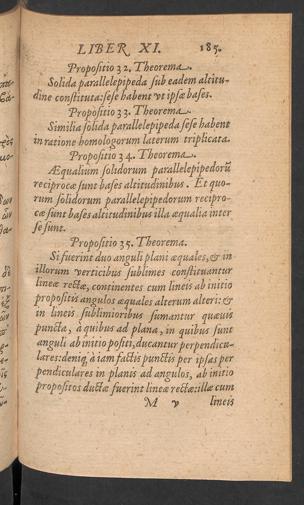 LIBER XI. 185.
Propositio 32. Theorema.
Solida parallelepipeda sub eadem altitu-
dine constituta: sese habent vt ipsæ bases.
Propositio 33. Theorema.
Similia solida parallelepipeda sese habent
in ratione homologorum laterum triplicata.
Propositio 34. Theorema.
Æqualium solidorum parallelepipedorũ
reciprocæ sunt bases altitudinibus. Et quo-
rum solidorum parallelepipedorum recipro-
cæ sunt bases altitudinibus illa æqualia inter
se sunt.
Propositio 35. Theorema.
Si fuerint duo anguli plani æquales, & in
illorum verticibus sublimes constituantur
lineæ rectæ, continentes cum lineis ab initio
propositis angulos æquales alterum alteri: &
in lineis sublimioribus sumantur quæuis
puncta, à quibus ad plana, in quibus sunt
anguli ab initio positi, ducantur perpendicu-
lares: deniq; à iam factis punctis per ipsas per
pendiculares in planis ad angulos, ab initio
propositos ductæ fuerint lineæ rectæ: illæ cum
M v lineis